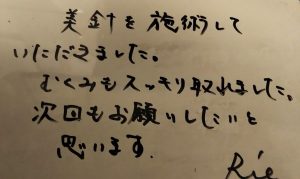 美針を施術して
いただきました。
むくみもスッキリ取れました。
次回もお願いしたいと
思います.
Rie